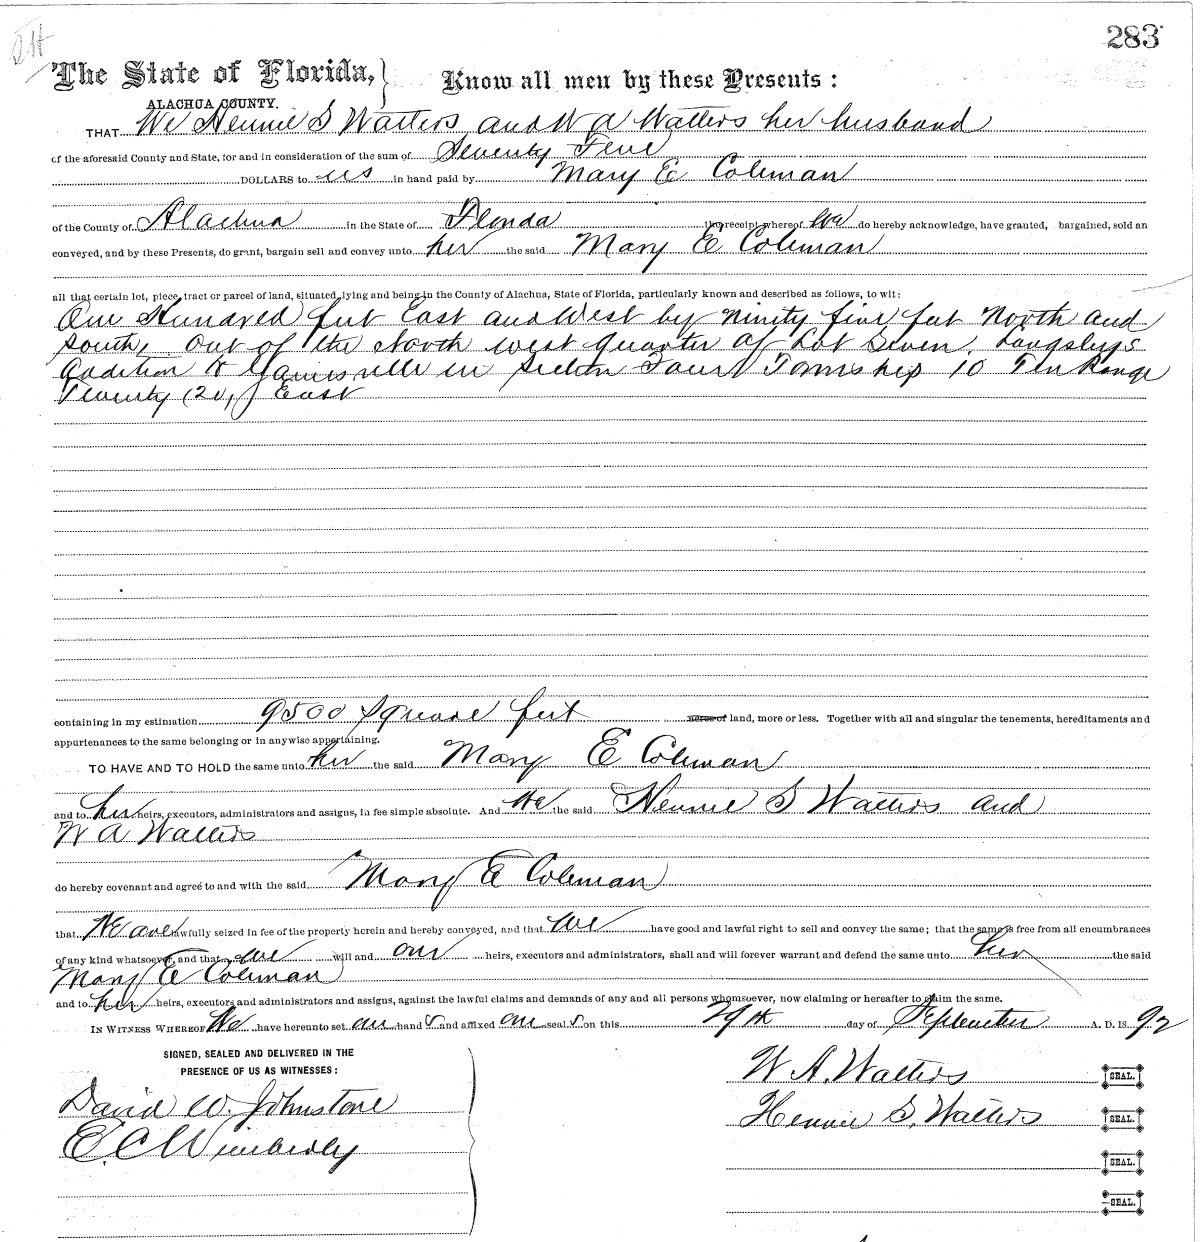 283
The State of Florida,
Know all men by these Presents:
ALACHUA COUNTY.
THAT We Hennie S Watters and W A Watters her husband
of the aforesaid County and State, for and in consideration of the sum of Seventy Five
DOLLARS to us in hand paid by Mary E Coleman
of the County of Alachua in the State of Florida the receipt whereof we do hereby acknowledge, have granted, bargained, sold an
conveyed, and by these Presents, do grant, bargain sell and convey unto her the said Mary E Coleman
all that certain lot, piece, tract or parcel of land, situated, lying and being in the County of Alachua, State of Florida, particularly known and described as follows, to wit:
One Hundred feet East and West by ninity five feet North and
South, out of the North west quarter of Lot Seven.
addition to Gainesville in Section Four Township 10 Ten Range
Twenty (20) East
containing in my estimation 9500 Square feet acres of land, more or less. Together with all and singular the tenements, hereditaments and
appurtenances to the same belonging or in anywise appertaining.
TO HAVE AND TO HOLD the same unto her the said Mary E Coleman
and to her heirs, executors, administrators and assigns, in fee simple absolute. And We the said Hennie S Watters and
W A Watters
do hereby covenant and agree to and with the said Mary E Coleman
that We are lawfully seized in fee of the property herein and hereby conveyed, and that we have good and lawful right to sell and convey the same; that the same is free from all encumbrances
of any kind whatsoever, and that we will and our heirs, executors and administrators, shall and will forever warrant and defend the same unto her the said
Mary E Coleman
and to her heirs, executors and administrators and assigns, against the lawful claims and demands of any and all persons whomsoever, now claiming or hereafter to claim the same.
IN WITNESS WHEREOF We have hereunto set our hand s and affixed our seal s on this 29th day of September A. D. 18 92
SIGNED, SEALED AND DELIVERED IN THE
PRESENCE OF US AS WITNESSES:
W. A. Watters SEAL.
David W. Johnstone
Hennie S. Watters SEAL.
E. C. Wimberly
SEAL.
SEAL.